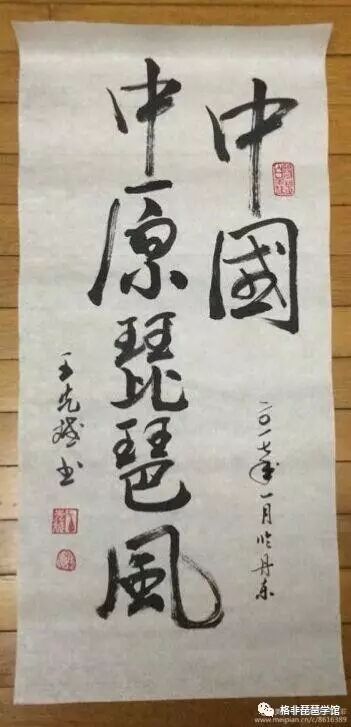 中國
二〇一七年一月於丹东
中原琵琶風
王克斌书
www.meipian.cn/c/8616389
格非琵琶学馆